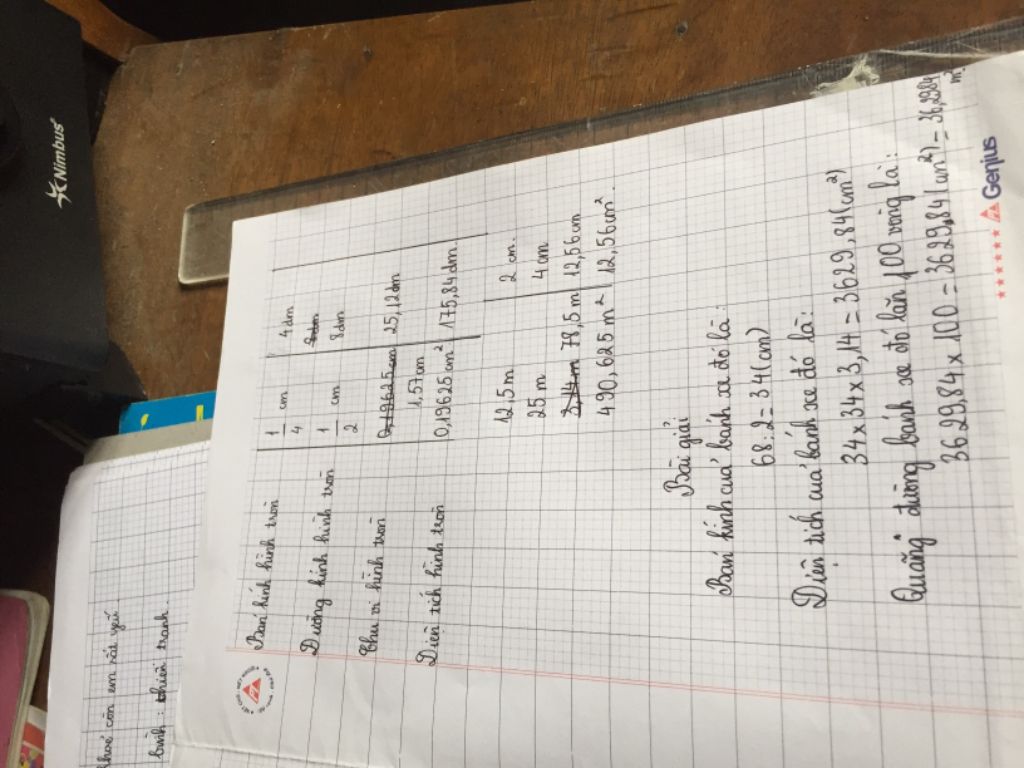 Nimbus
khoẻ con em rất yếu
bình : thiền tranh
Bán kính hình tròn 1/4 cm 4 dm
Đường kính hình tròn 1/2 cm 8 dm
Chu vi hình tròn 0,19625 cm 1,57 cm 25,12 dm
Diện tích hình tròn 0,19625 cm² 175,84 dm.
12,5 m 2 cm.
25 m 4 cm
3,14 m 78,5 m 12,56 cm
490,625 m² 12,56 cm²
Bài giải
Bán kính của bánh xe đó là :
68 : 2 = 34 (cm)
Diện tích của bánh xe đó là :
34 x 34 x 3,14 = 3629,84 (cm²)
Quãng đường bánh xe đó lăn 100 vòng là :
3629,84 x 100 = 3629,84 (cm²) = 36,2984
m²
Genius